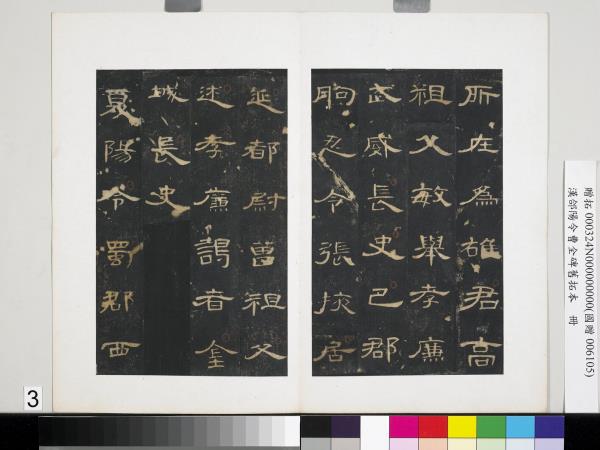 所在為雄君高
祖父敏舉孝廉
武威長史巴郡
朐忍令張掖居
延都尉曾祖父
述孝廉謁者金
城長史
夏陽令蜀郡西
贈拓 000324N000000000(國贈 006105)
漢郃陽令曹全碑舊拓本 冊
3